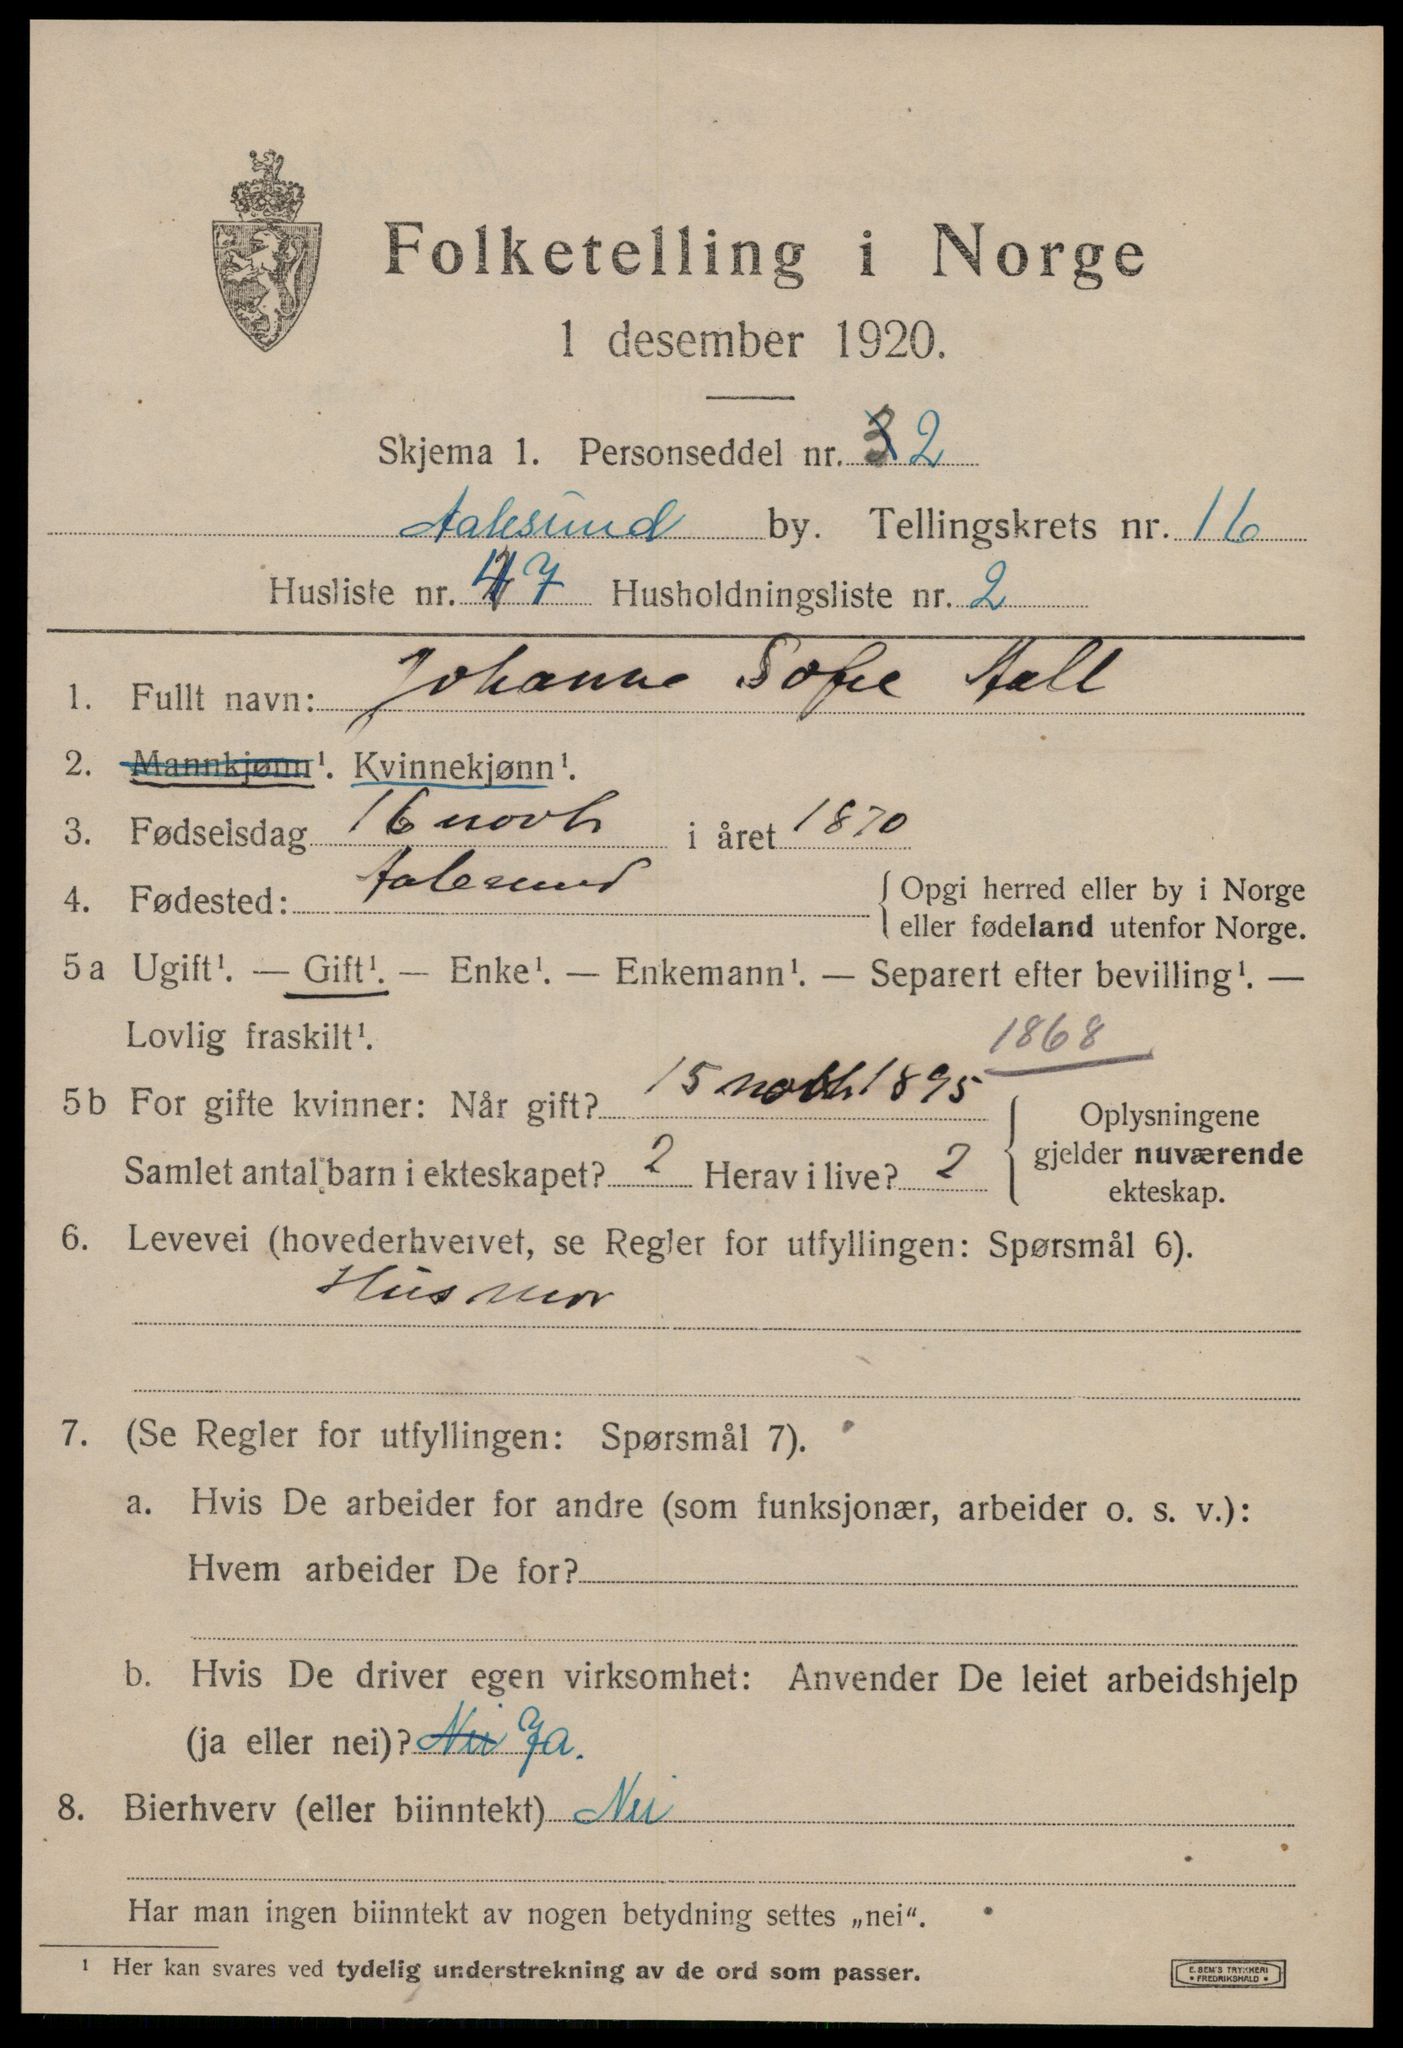 Folketelling i Norge
1 desember 1920.
Skjema 1. Personseddel nr. 3 2
Aalesund by. Tellingskrets nr. 16
Husliste nr. 47 Husholdningsliste nr. 2
1. Fullt navn: Johanne Sofie Aall
2. Mannkjønn¹. Kvinnekjønn¹.
3. Fødselsdag 16 novb i året 1870
4. Fødested: Aalesund { Opgi herred eller by i Norge
eller fødeland utenfor Norge.
5a Ugift¹. — Gift¹. — Enke¹. — Enkemann¹. — Separert efter bevilling¹. —
Lovlig fraskilt¹.
1868
5b For gifte kvinner: Når gift? 15 novbr 1895
Samlet antal barn i ekteskapet? 2 Herav i live? 2
Oplysningene
gjelder nuværende
ekteskap.
6. Levevei (hovederhvervet, se Regler for utfyllingen: Spørsmål 6).
Husmor
7. (Se Regler for utfyllingen: Spørsmål 7).
a. Hvis De arbeider for andre (som funksjonær, arbeider o. s. v.):
Hvem arbeider De for?
b. Hvis De driver egen virksomhet: Anvender De leiet arbeidshjelp
(ja eller nei)? Nei Ja.
8. Bierhverv (eller biinntekt) Nei
Har man ingen biinntekt av nogen betydning settes „nei“.
¹ Her kan svares ved tydelig understrekning av de ord som passer.
E. SEM'S TRYKKERI
• FREDRIKSHALD •